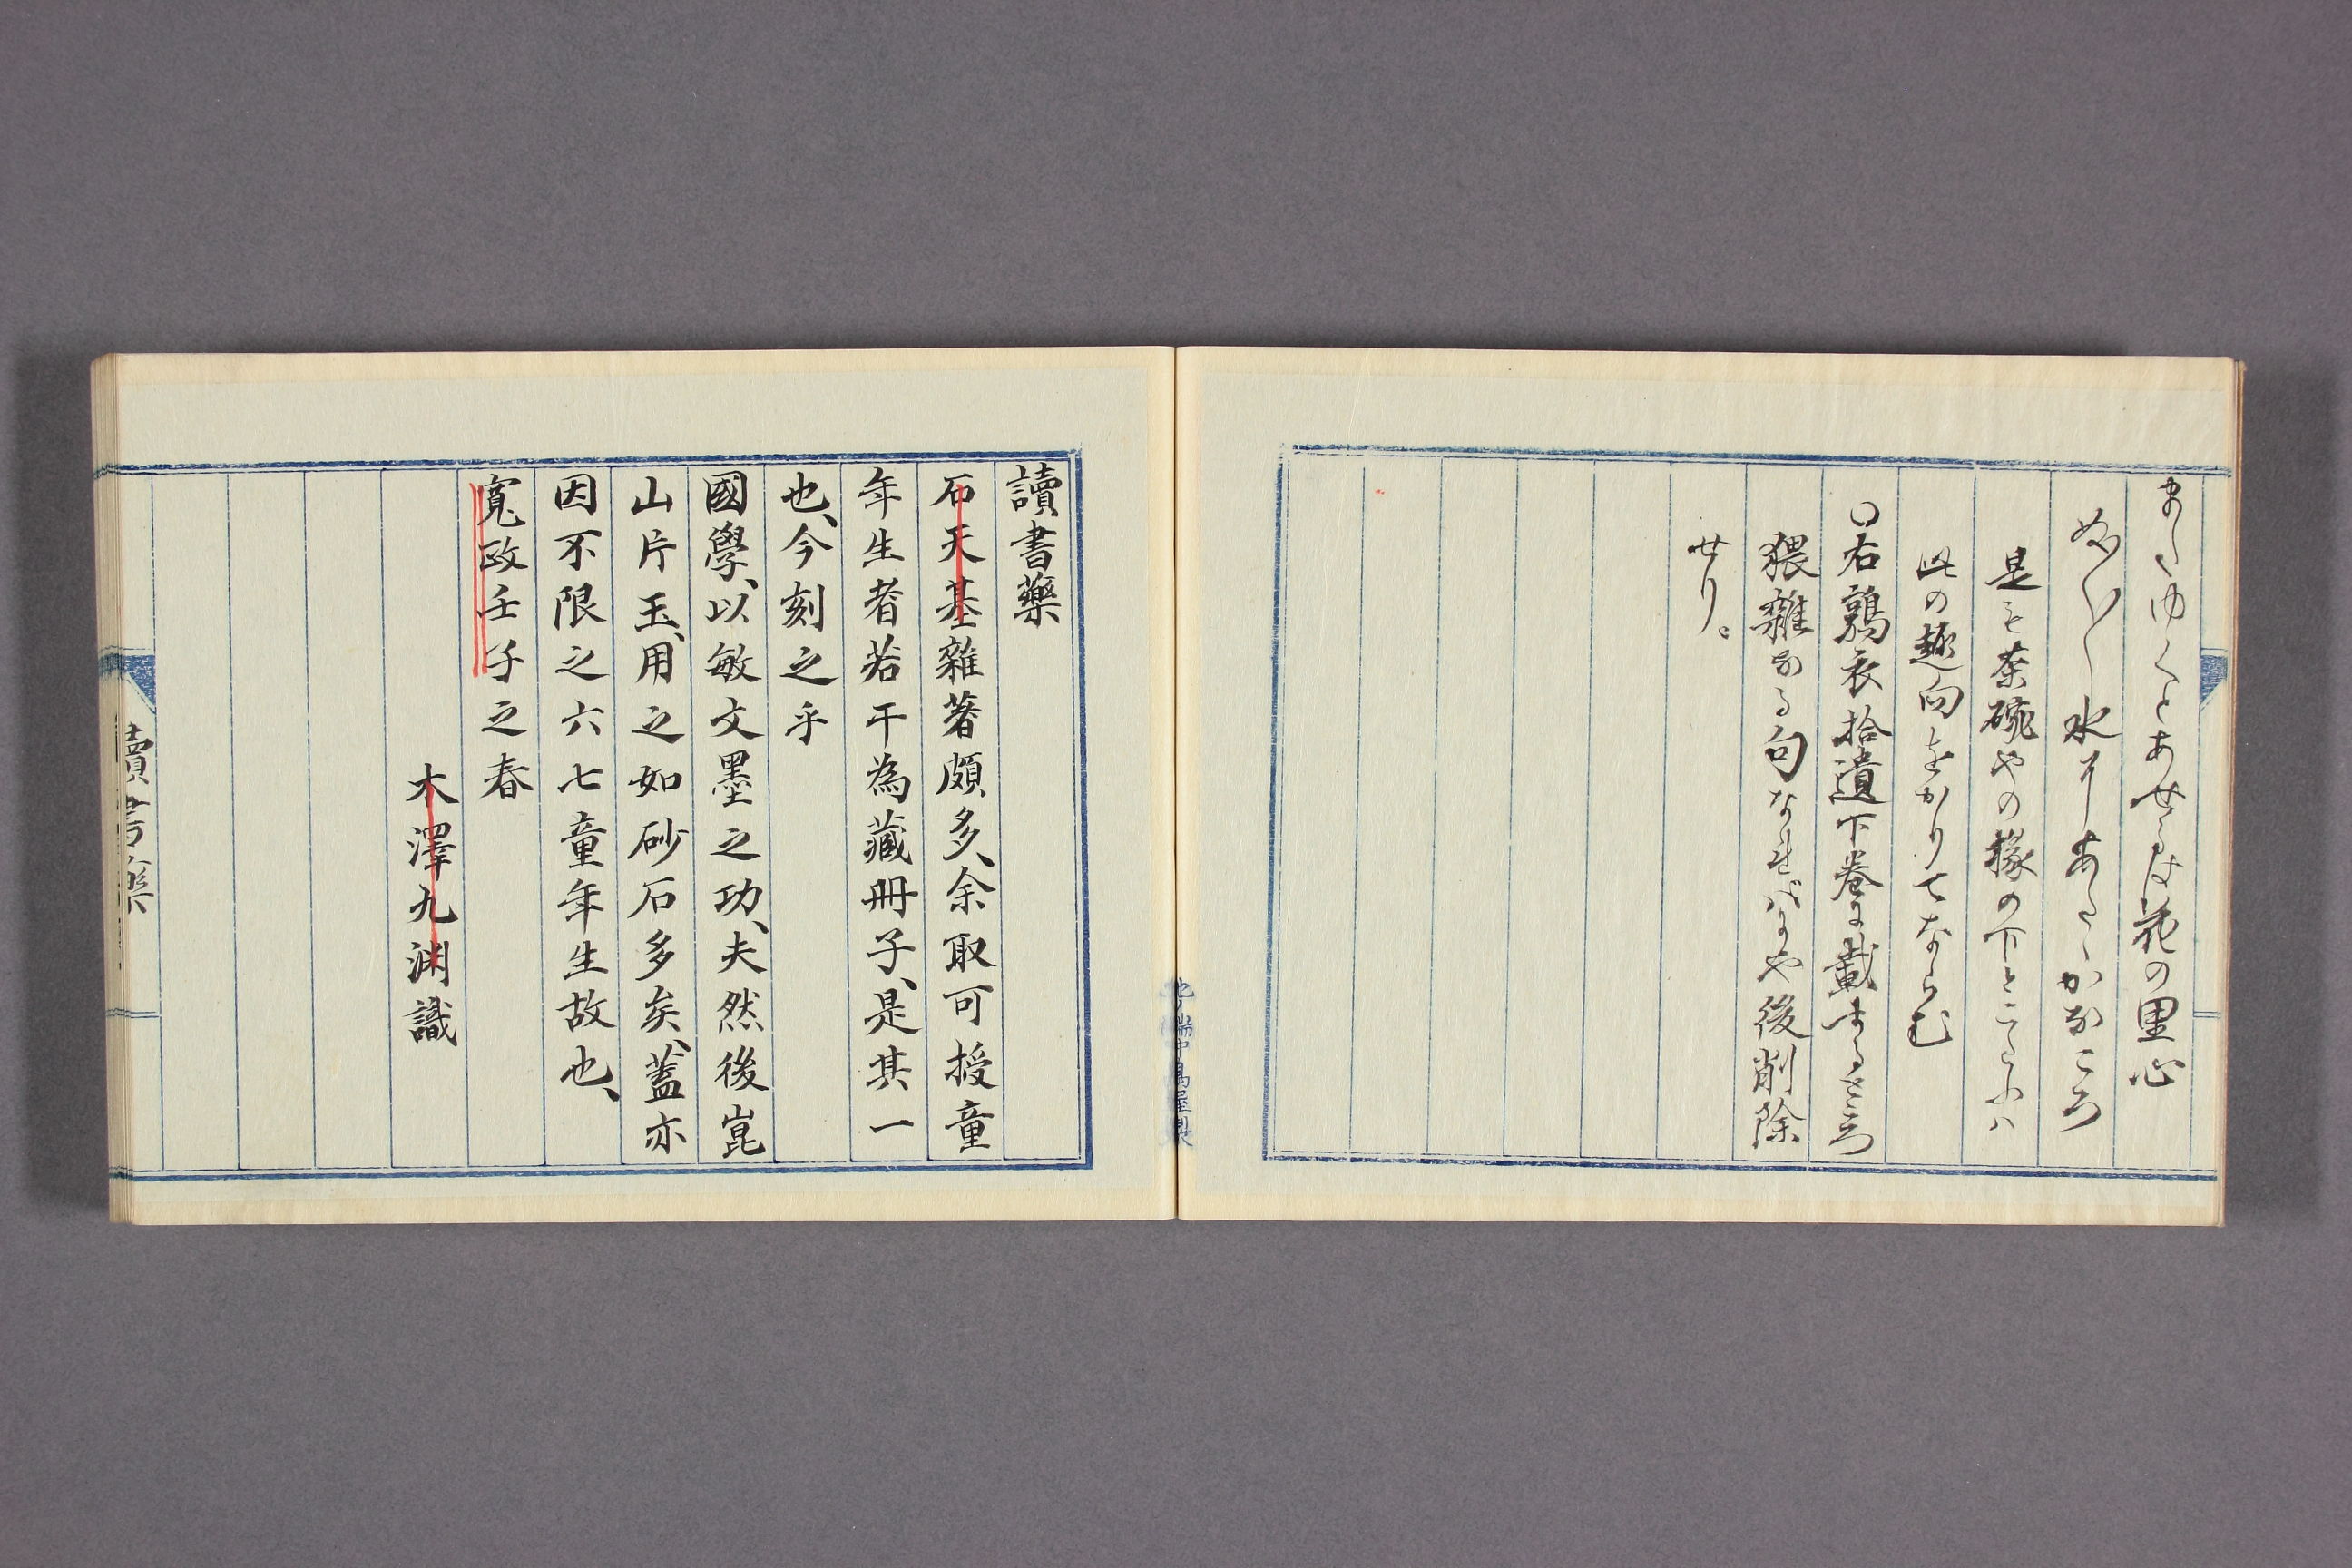 まゝゆくとあせるは花の里心
水にあたゝかなころ
是も茶碗やの椽の下といふは
此の趣向をかりてならむ
〇右鶉衣拾遺下巻に載するところ
猥雜なる句なればにや後削除
せり。
讀書藥
石天基雜著頗多、余取可授童
年生者若干為藏冊子、是其一
也、今刻之乎
國學、以敏文墨之功、夫然後崑
山片玉、用之如砂石多矣、蓋亦
因不限之六七童年生故也、
寛政壬子之春
木澤九渊識
讀書藥